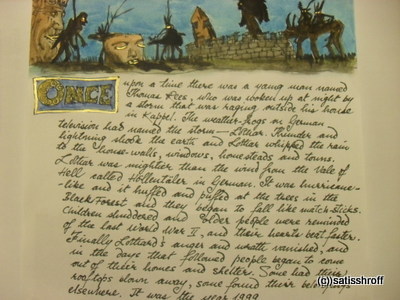 ONCE upon a time there was a young man named
Thomas Rees, who was woken up at night by
a storm that was raging outside his house
in Kappel. The weather-frogs on German
television had named the storm – Lothar. Thunder and
lightning shook the earth and Lothar whipped the rain
to the house-walls, windows, homesteads and towns.
Lothar was mightier than the wind from the Vale of
Hell called Höllental in German. It was hurricane-
-like and it huffed and puffed at the trees in the
Black Forest and they began to fall like match-sticks.
Children shuddered and older people were reminded
of the last World War II, and their hearts beat faster.
Finally Lothar's anger and wrath vanished, and
in the days that followed people began to come
out of their homes and shelter. Some had their
rooftops blown away, some found their belongings
elsewhere. It was the year 1999
(c)satisshroff